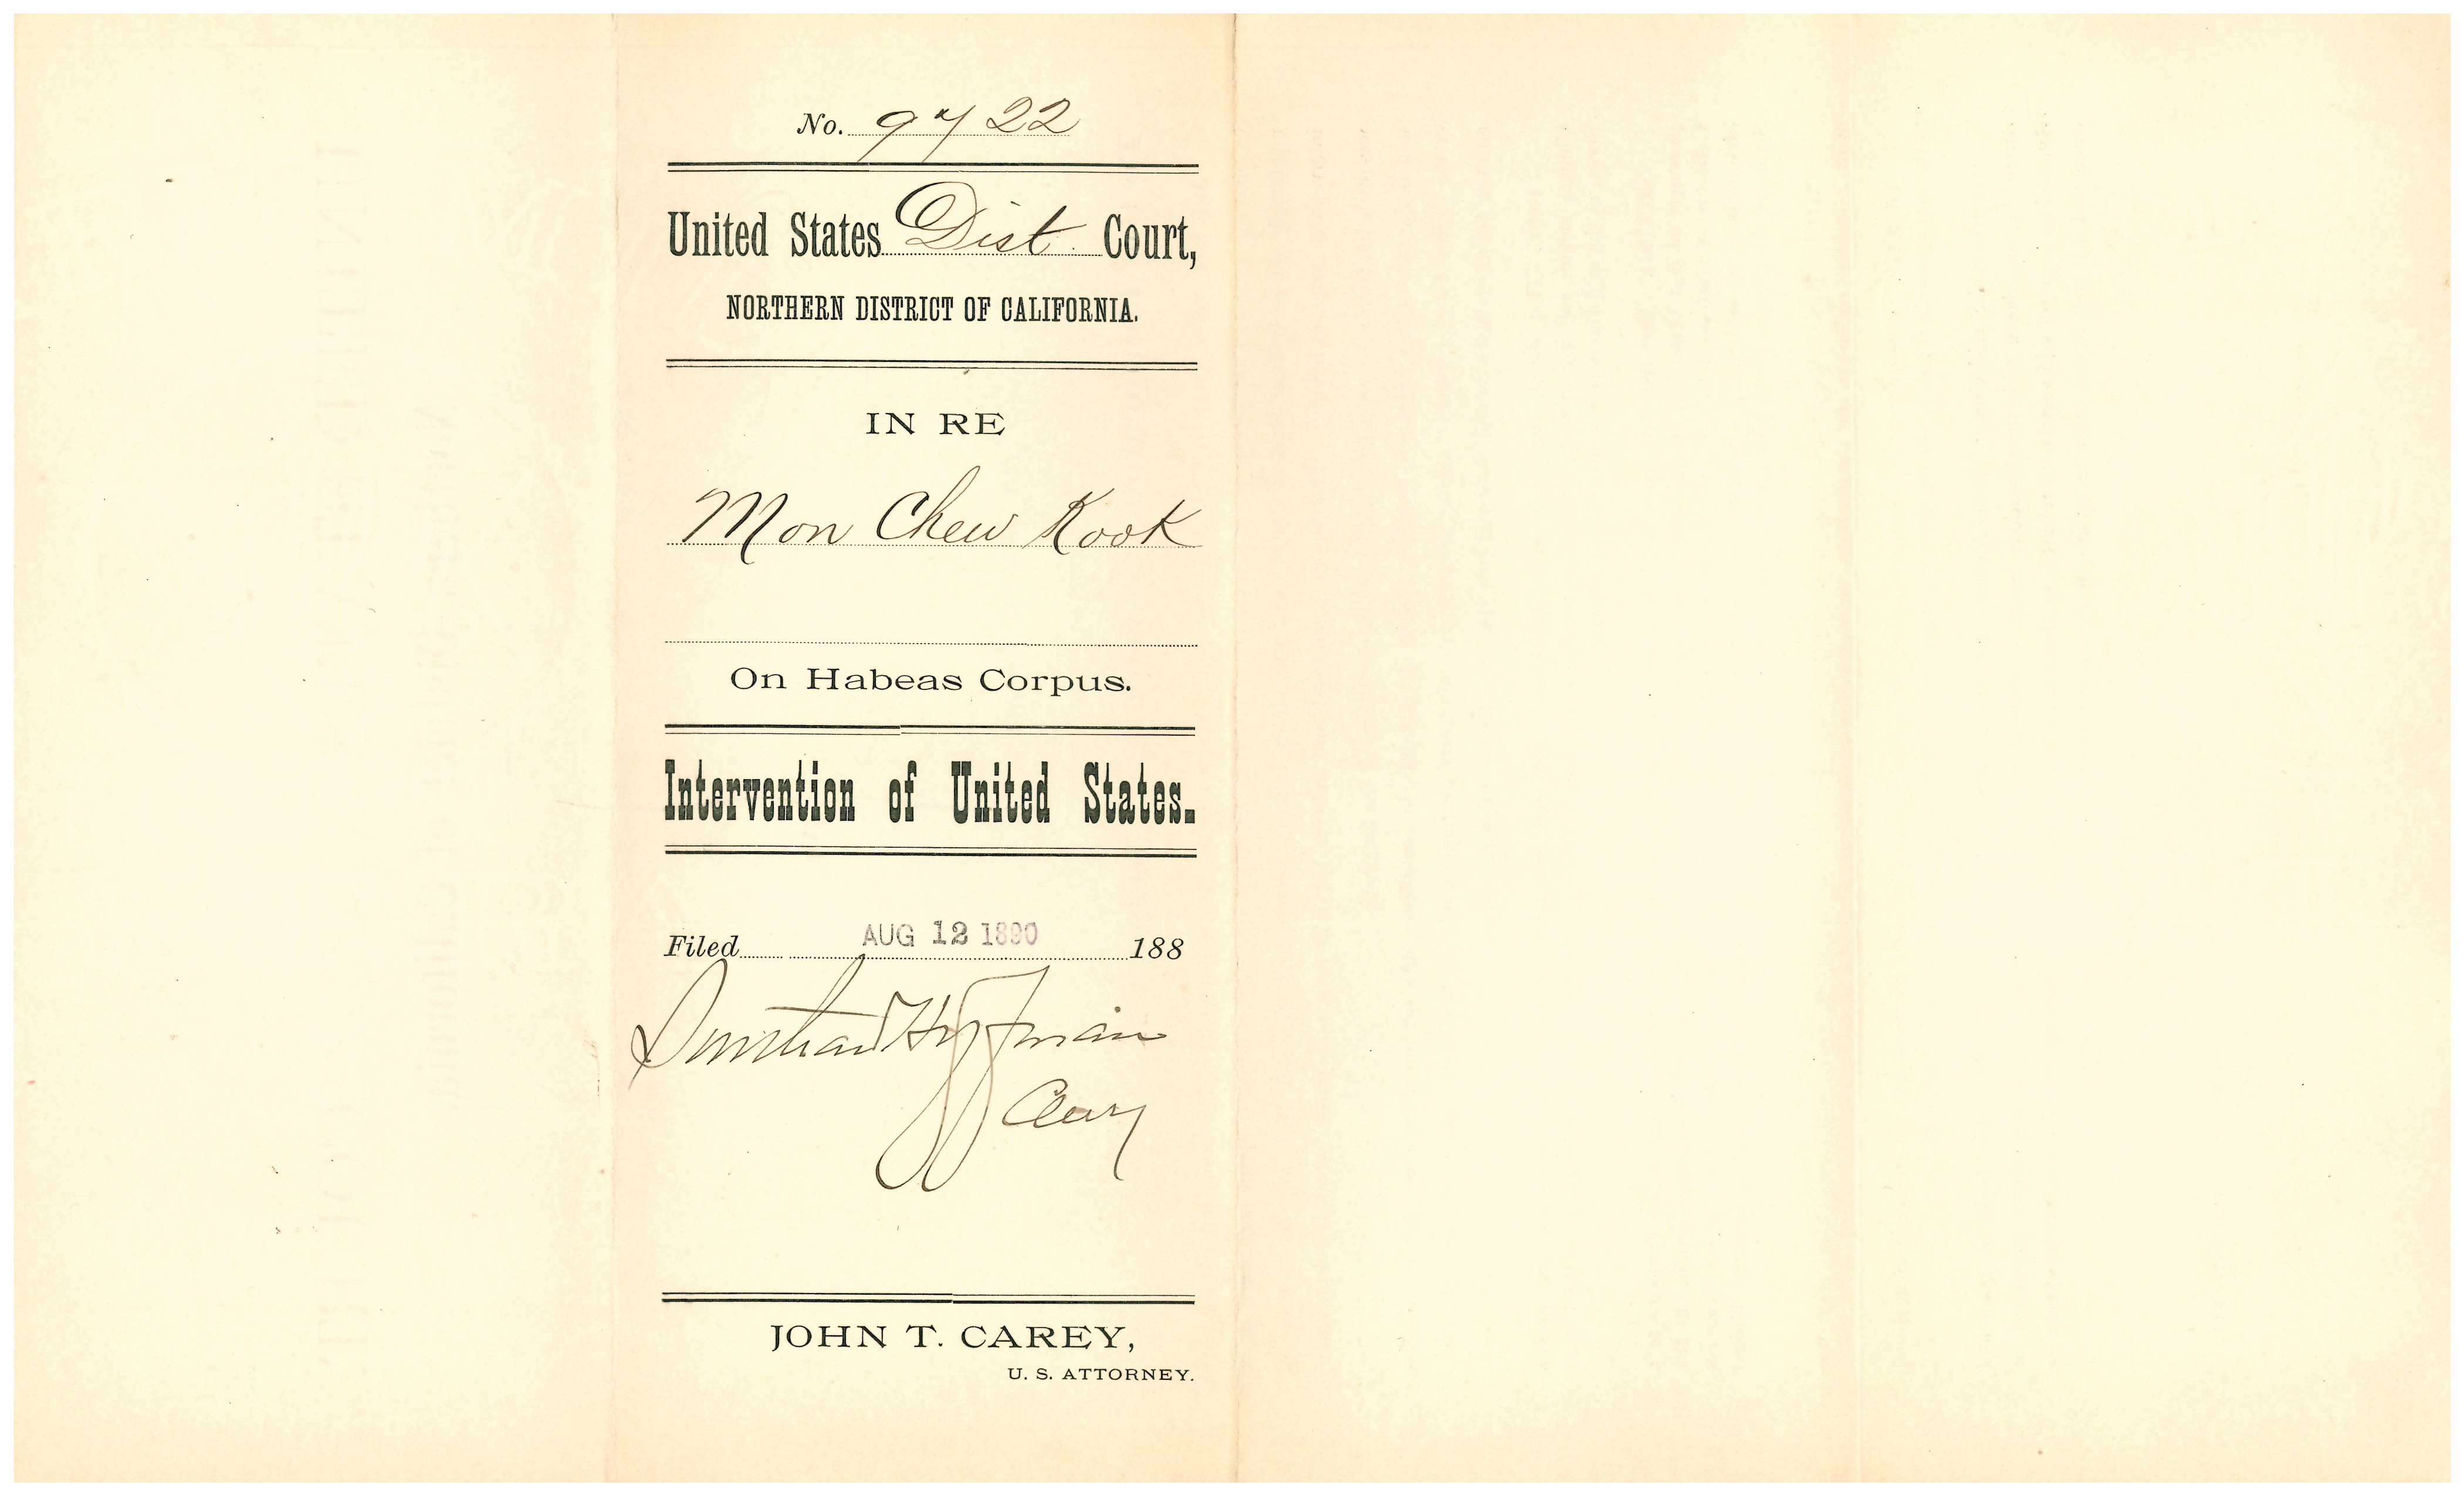 No. 9722
United States Dist. Court,
NORTHERN DISTRICT OF CALIFORNIA.
IN RE
Mon Chew Kook
On Habeas Corpus.
Intervention of United States.
Filed AUG 12 1890 188
Southard Hoffman
Clerk
JOHN T. CAREY,
U. S. ATTORNEY.